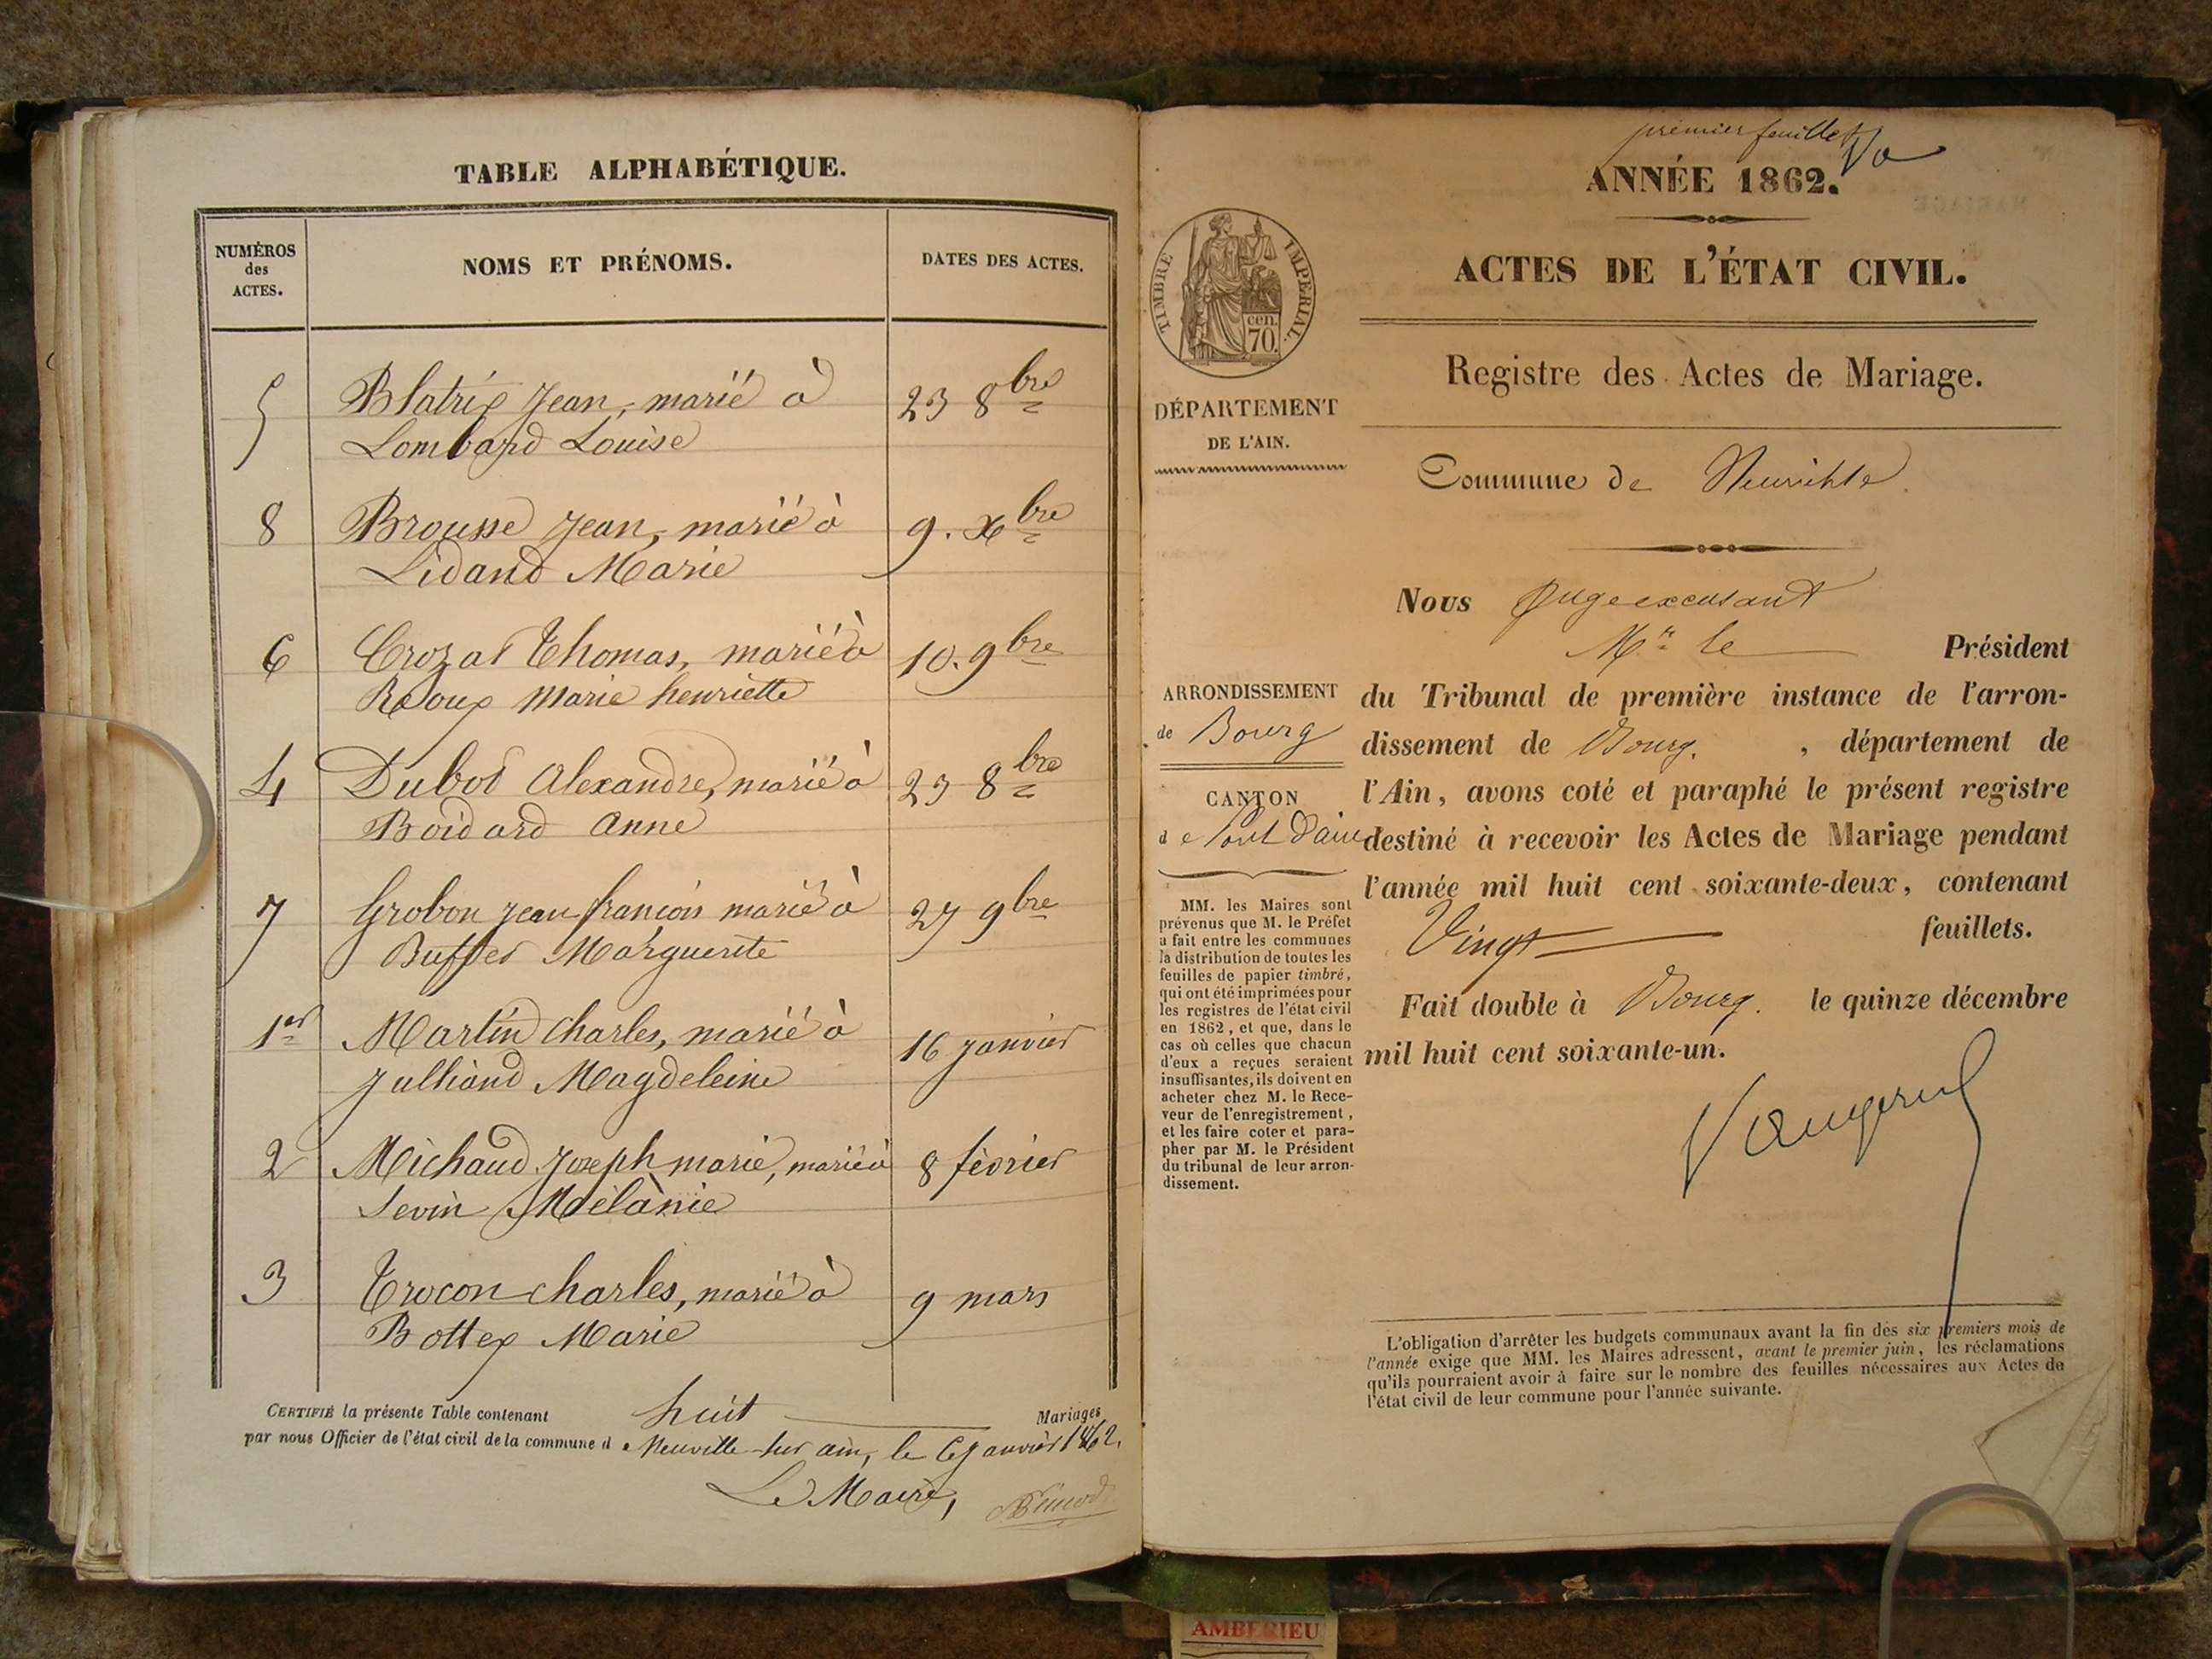 TABLE ALPHABÉTIQUE.
NUMÉROS des ACTES.
NOMS ET PRÉNOMS.
DATES DES ACTES.
5 Blatrix Jean, marié à 23 8bre
Lombard Louise
8 Brousse Jean, marié à 9. Xbre
Lidand Marie
6 Crozat Thomas, marié à 10. 9bre
Roux Marie henriette
4 Dubod Alexandre, marié à 23 8bre
Boidard Anne
7 Grobon Jean françois marié à 27 9bre
Buffet Marguerite
1er Martin Charles, marié à 16 Janvier
Julliand Magdeleine
2 Michaud Joseph marie, marié à 8 février
Sevin Mélanie
3 Trocon charles, marié à 9 mars
Bottex Marie
CERTIFIÉ la présente Table contenant huit Mariages
par nous Officier de l'état civil de la commune de Neuville-sur ain, le 6 janvier 1862.
Le Maire,
premier feuillet
ANNÉE 1862.
ACTES DE L'ÉTAT CIVIL.
TIMBRE IMPÉRIAL.
cen.
70.
Registre des Actes de Mariage.
DÉPARTEMENT
DE L'AIN.
Commune de Neuville
Nous Juge excusant
Mr le Président
ARRONDISSEMENT
de Bourg
CANTON
de Pont d'ain
du Tribunal de première instance de l'arron-
dissement de Bourg. , département de
l'Ain, avons coté et paraphé le présent registre
destiné à recevoir les Actes de Mariage pendant
l'année mil huit cent soixante-deux, contenant
Vingt feuillets.
Fait double à Bourg. le quinze décembre
mil huit cent soixante-un.
MM. les Maires sont
prévenus que M. le Préfet
a fait entre les communes
la distribution de toutes les
feuilles de papier timbré,
qui ont été imprimées pour
les registres de l'état civil
en 1862, et que, dans le
cas où celles que chacun
d'eux a reçues seraient
insuffisantes, ils doivent en
acheter chez M. le Rece-
veur de l'enregistrement,
et les faire coter et para-
pher par M. le Président
du tribunal de leur arron-
dissement.
L'obligation d'arrêter les budgets communaux avant la fin des six premiers mois de
l'année exige que MM. les Maires adressent, avant le premier juin, les réclamations
qu'ils pourraient avoir à faire sur le nombre des feuilles nécessaires aux Actes de
l'état civil de leur commune pour l'année suivante.
AMBERIEU